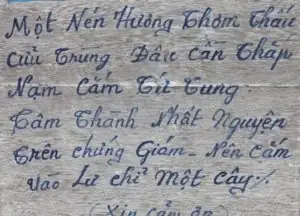 Một Nén Hương Thơm Thấu
Cửu Trung. Đâu Cần Thắp
Nạm Cắm Tít Tung.
Tâm Thành Nhất Nguyện
Trên chứng Giám - Nên Cắm
Vào Lư chỉ Một Cây./.
Xin cảm ơn